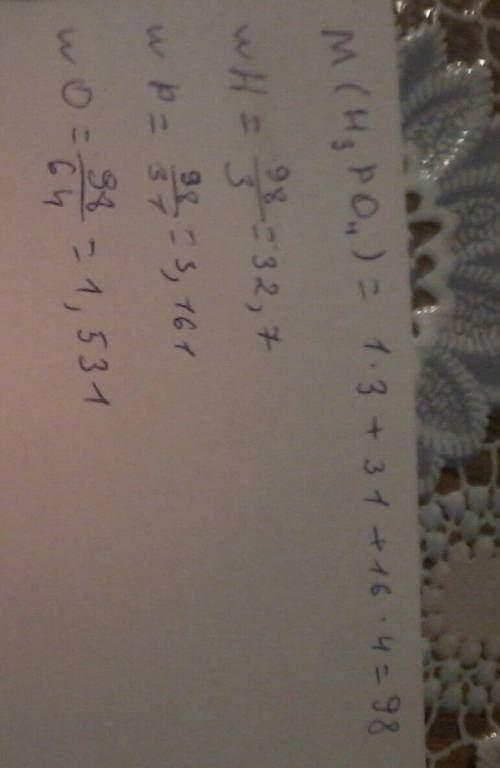 M(H₃PO₄) = 1·3 + 31 + 16·4 = 98
wH = 98/3 = 32,7
wP = 98/31 = 3,161
wO = 98/64 = 1,531